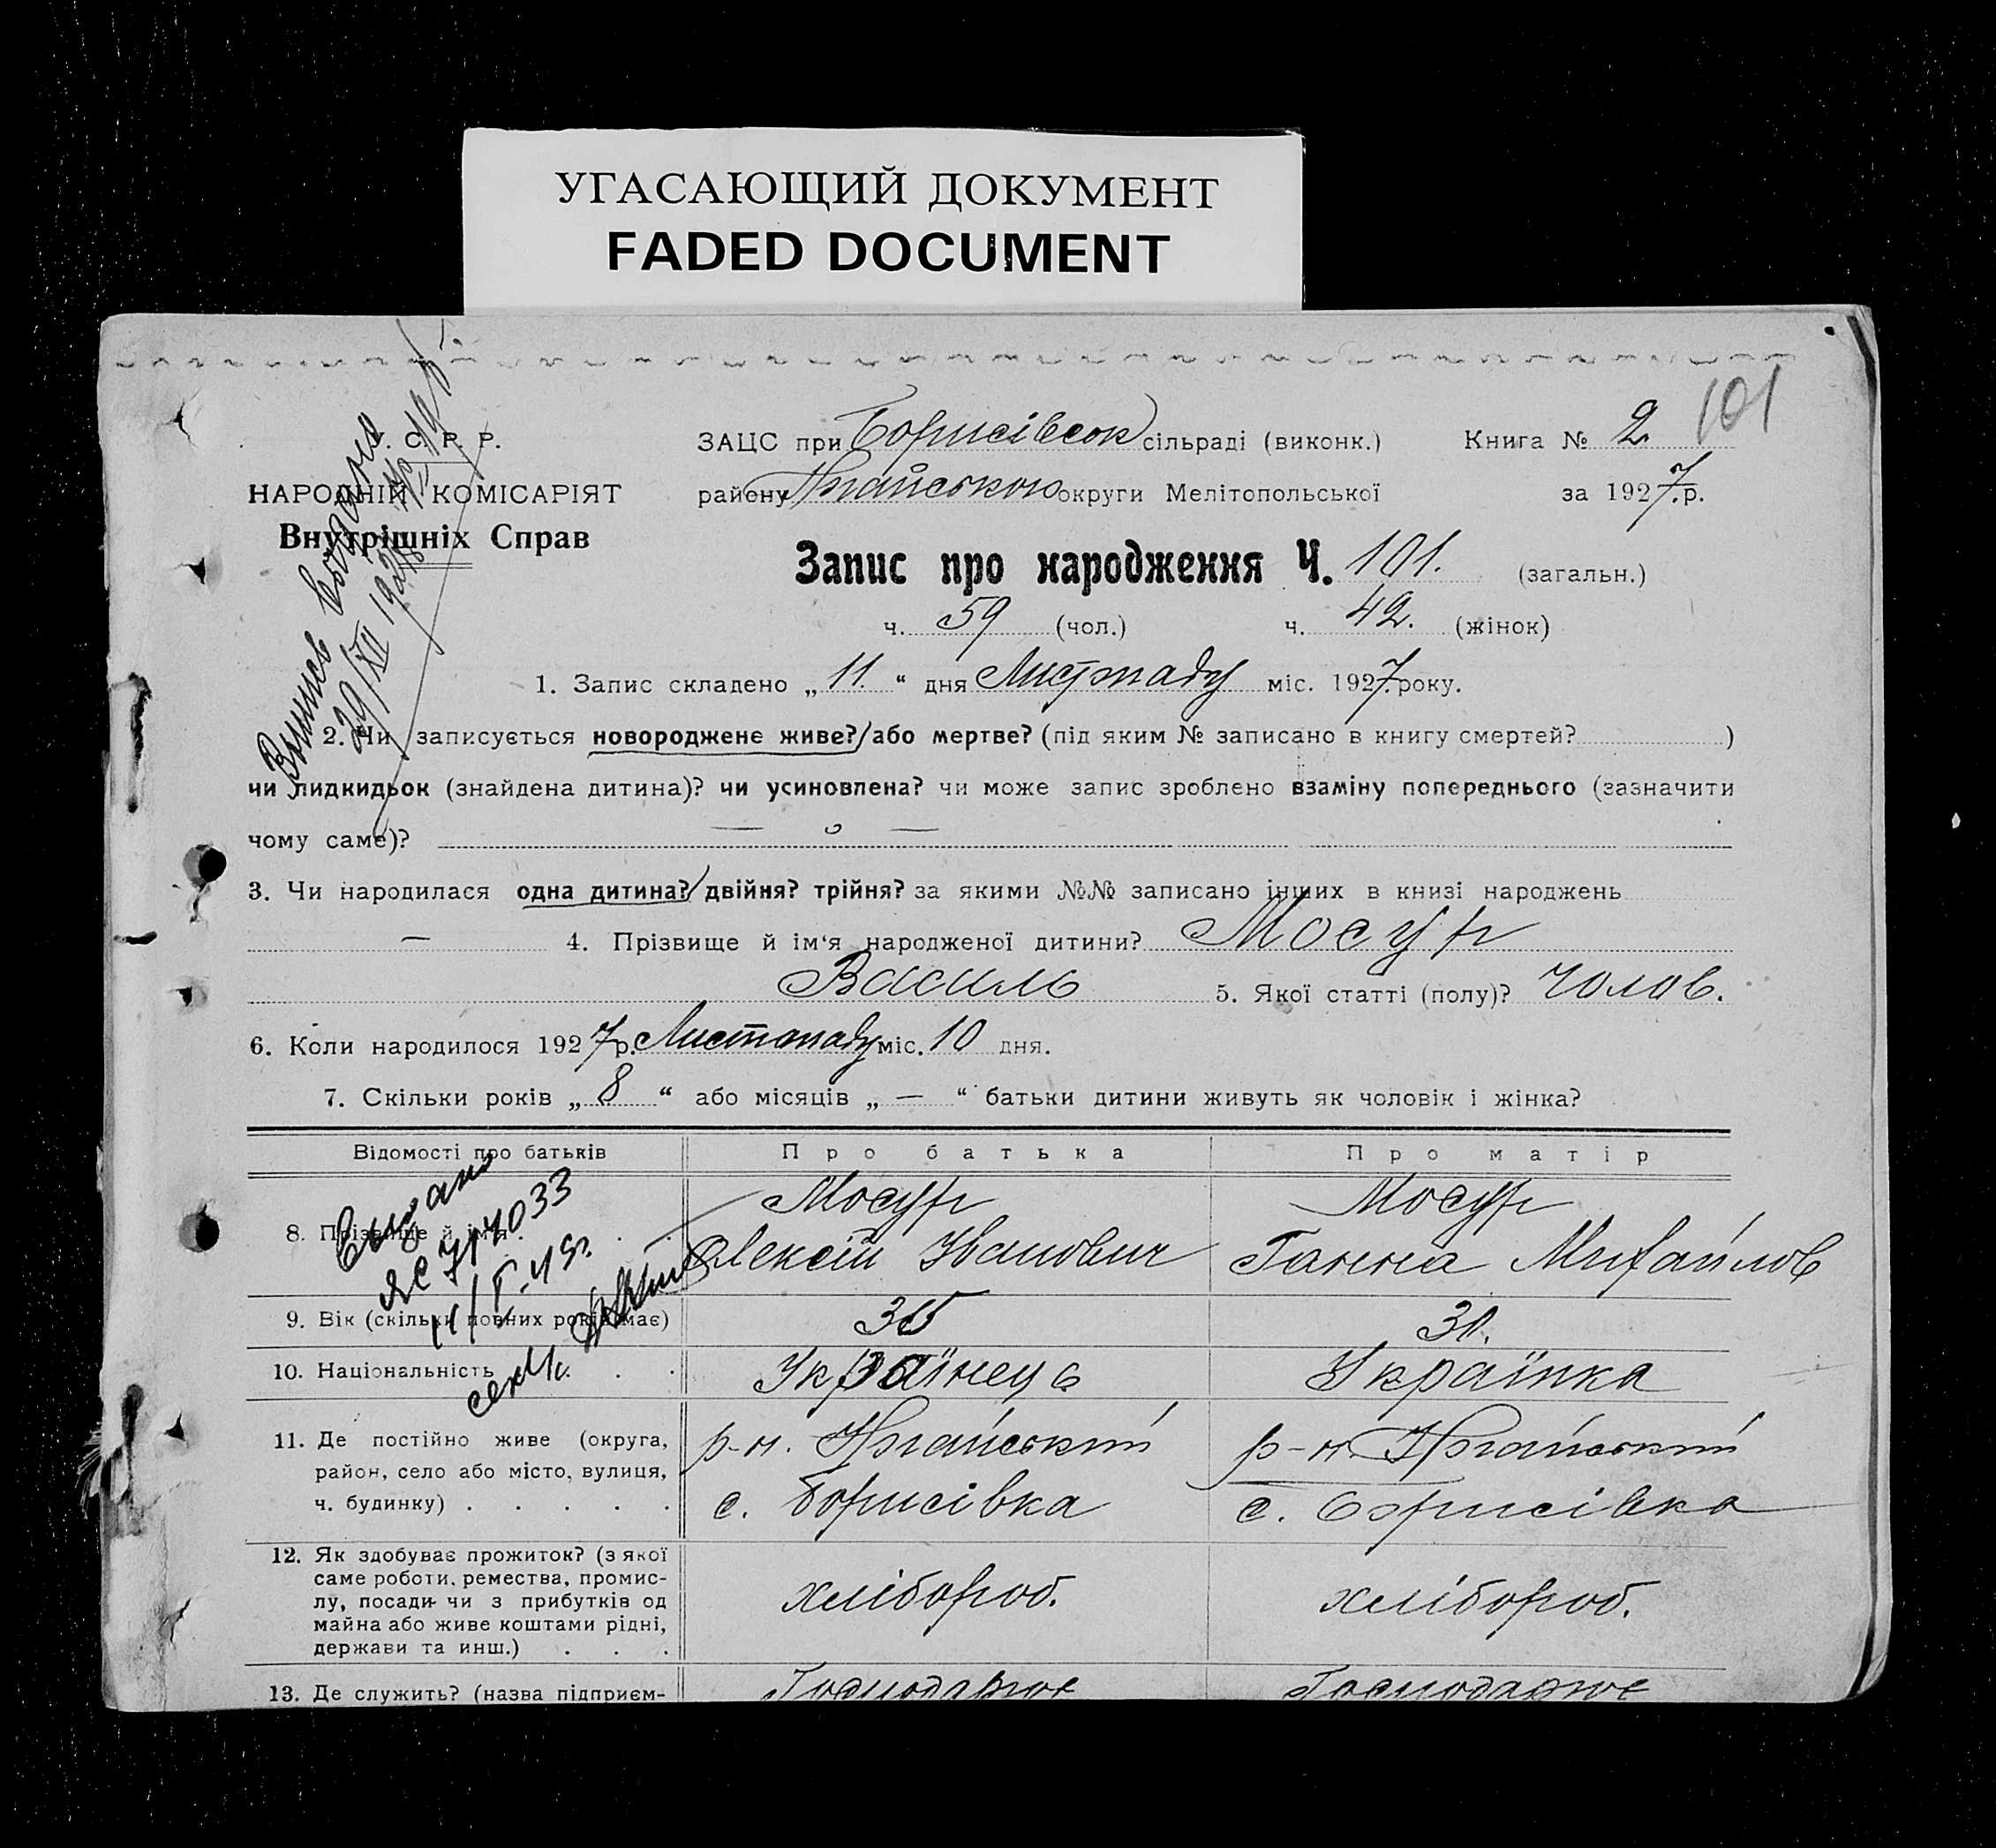 УГАСАЮЩИЙ ДОКУМЕНТ
FADED DOCUMENT
101
У. С. Р. Р.
НАРОДНІЙ КОМІСАРІЯТ
Внутрішніх Справ
Выпись выдана
29/XII 192
ЗАЦС при Борисівськ сільраді (виконк.) Книга № 2.
району Нгайського округи Мелітопольської за 1927.р.
Запис про народження Ч. 101. (загальн.)
ч. 59 (чол.) ч. 42. (жінок)
1. Запис складено „ 11. “ дня Листпаду міс. 1927.року.
2. Чи записується новороджене живе?/або мертве? (під яким № записано в книгу смертей? )
чи пидкидьок (знайдена дитина)? чи усиновлена? чи може запис зроблено взаміну попереднього (зазначити
чому саме)? — о —
3. Чи народилася одна дитина?/двійня? трійня? за якими №№ записано інших в книзі народжень
— 4. Прізвище й ім‘я народженої дитини? Мосур
Василь 5. Якої статті (полу)? чолов.
6. Коли народилося 1927р. Листопаду міс. 10 дня.
7. Скільки років „ 8 “ або місяців „ — “ батьки дитини живуть як чоловік і жінка?
Відомості про батьків Про батька Про матір
8. Прізвище й ім‘я . . . Мосур Мосур
Олексій Іванович Ганна Михайлов
9. Вік (скільки повних років має) 35 31.
10. Національність . . . Українець Українка
11. Де постійно живе (округа, р-н. Нгайський р-н Нгайський
район, село або місто, вулиця,
ч. будинку) . . . . . с. Борисівка с. Борисівка
12. Як здобуває прожиток? (з якої
саме роботи, ремества, промис-
лу, посади чи з прибутків од хлібороб. хлібороб.
майна або живе коштами рідні,
держави та инш.) . . .
13. Де служить? (назва підприєм- Господарює Господарює